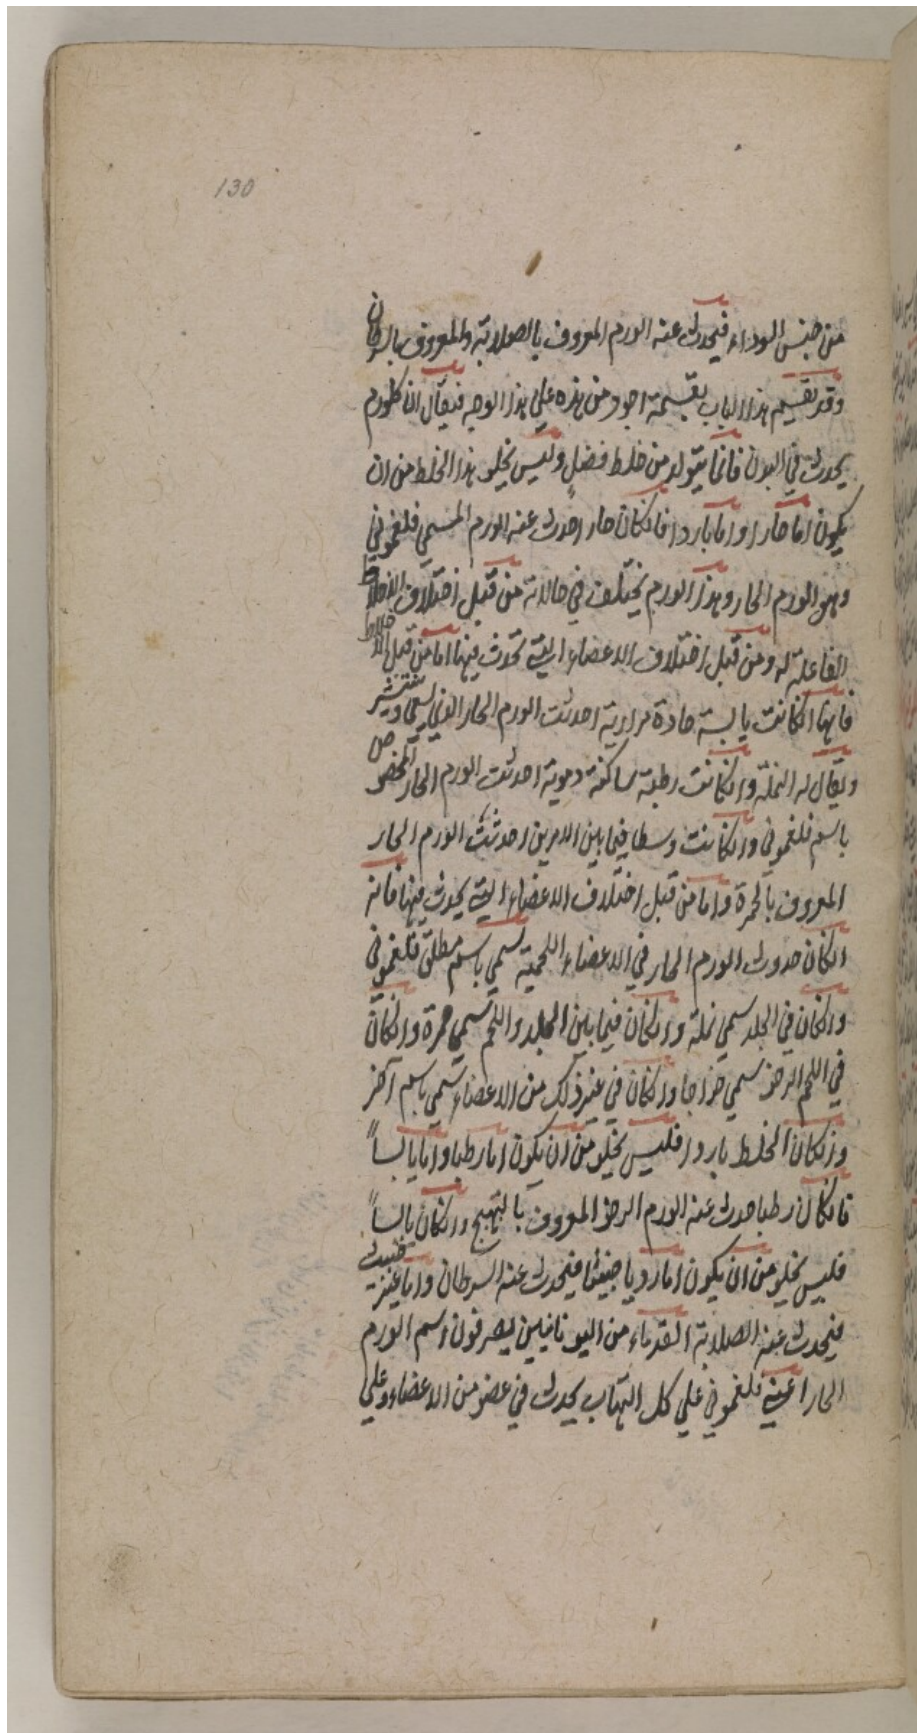 130
من جنس السوداء فيحدث عنه الورم المعروف بالصلابة والمعروف بالسرطان
وقد تقسم هذا الباب بقسمة اجود من هذه علي هذا الوجه فيقال ان كل ورم
يحدث في البدن فانما يتولد من خلط فضل وليس يخلو هذا الخلط من ان
يكون اما حارا واما باردا فان كان حارا حدث عنه الورم المسمي فلغموني
وهو الورم الحار وهذا الورم يختلف في حالاته من قبل اختلاف الاخلاط
الفاعلة له ومن قبل اختلاف الاعضاء التي تحدث فيها اما من قبل الاخلاط
فانها ان كانت يابسة حادة مرارية احدثت الورم الحار الذي يسمي
ويقال له النملة وان كانت رطبة ساكنة دموية احدثت الورم الحار المخصوص
باسم فلغموني وان كانت وسطا فيما بين الامرين احدثت الورم الحار
المعروف بالحمرة واما من قبل اختلاف الاعضاء التي يحدث فيها فانه
ان كان حدوث الورم الحار في الاعضاء اللحمية سمي باسم مطلق فلغموني
وان كان في الجلد سمي نملة وان كان فيما بين الجلد واللحم سمي حمرة وان كان
في اللحم الرخو سمي خراجا وان كان في غير ذلك من الاعضاء سمي باسم آخر
وان كان الخلط باردا فليس يخلو من ان يكون اما رطبا واما يابسا
فان كان رطبا حدث عنه الورم الرخو المعروف بالتهيج وان كان يابساً
فليس يخلو من ان يكون اما رديا خبيثا فيحدث عنه السرطان واما غير خبيث
فيحدث عنه الصلابة القدماء من اليونانيين يصرفون اسم الورم
الحار اعني فلغموني علي كل التهاب يحدث في عضو من الاعضاء وعلي